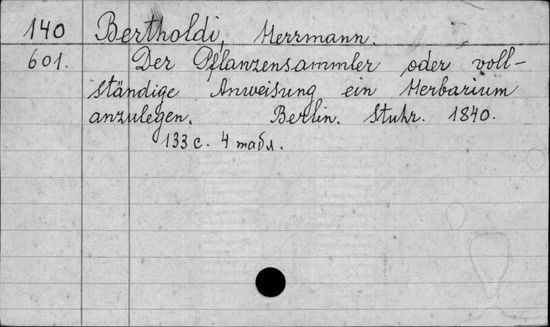 140 Bertholdi, Herrmann.
601. Der Pflanzensammler oder voll-
ständige Anweisung ein Herbarium
anzulegen. Berlin. Stuhr. 1840.
133 с. 4 табл.